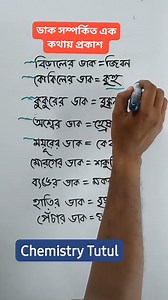 ডাক সম্পর্কিত এক
কথায় প্রকাশ
বিড়ালের ডাক =
কোকিলের ডাক = কুহু
কুকুরের ডাক =
অশ্বের ডাক = হ্রেষা
ময়ূরের ডাক =
মোরগের ডাক =
ব্যাঙের ডাক =
হাতির ডাক =
পেঁচার ডাক =
Chemistry Tutul